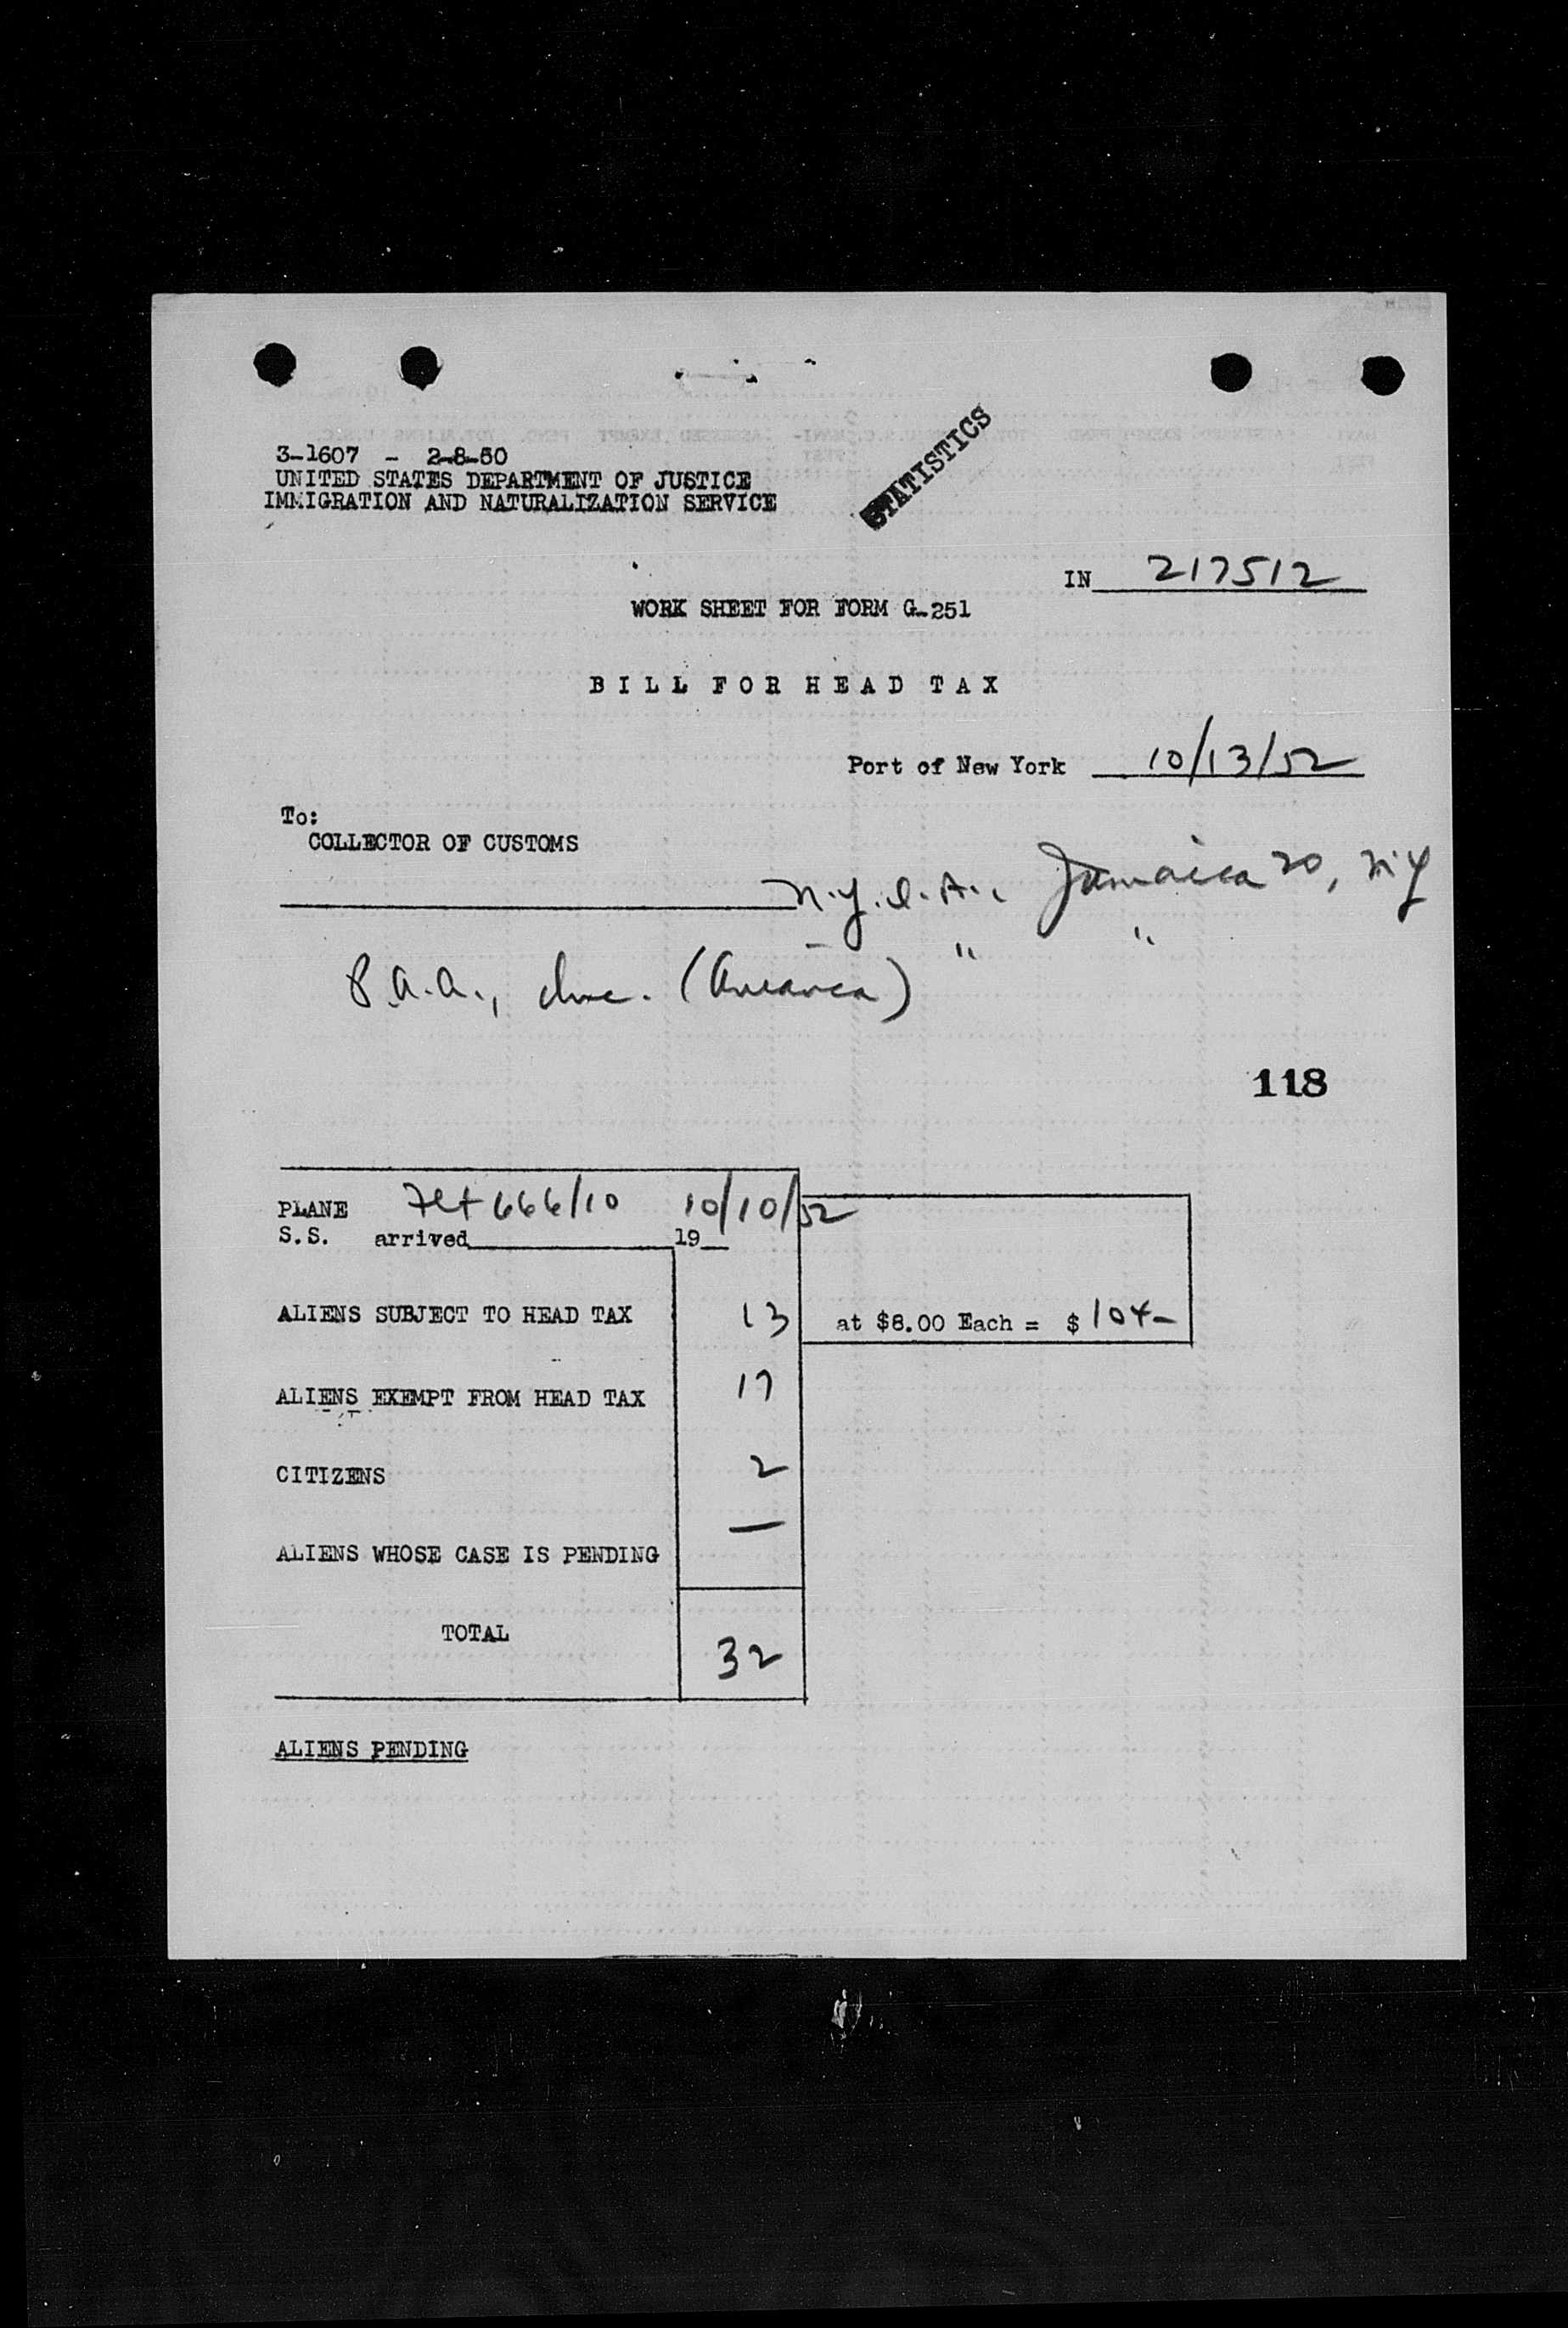 3-1607 - 2-8-50
UNITED STATES DEPARTMENT OF JUSTICE
IMMIGRATION AND NATURALIZATION SERVICE
STATISTICS
IN 217512
WORK SHEET FOR FORM G-251
BILL FOR HEAD TAX
Port of New York 10/13/52
To:
COLLECTOR OF CUSTOMS
N.Y.I.A., Jamaica 30, N.Y
P.A.A., Inc. (Avianca) " "
118
PLANE Flt 666/10 10/10/52
S.S. arrived 19
ALIENS SUBJECT TO HEAD TAX 13 at $8.00 Each = $ 104-
ALIENS EXEMPT FROM HEAD TAX 17
CITIZENS 2
ALIENS WHOSE CASE IS PENDING —
TOTAL 32
ALIENS PENDING